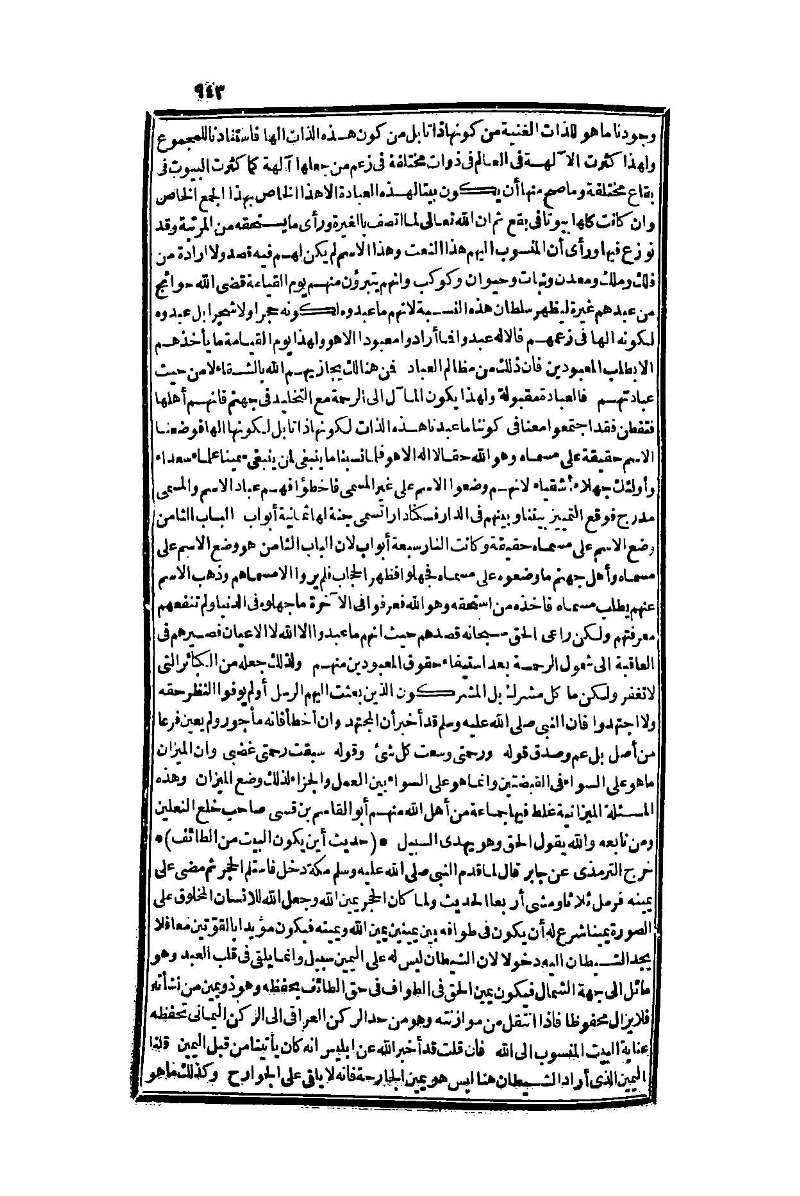 ٩٤٣
وجودنا ما هو للذات الغنية من كونها ذاتا بل من كون هذه الذات الها فاستفادنا للمجموع
ولهذا كثرت الآلهة في العالم في ذوات مختلفة في زعم من جعلها آلهة كما كثرت البيوت في
بقاع مختلفة وما صح منها أن يكون بيتا لهذه العبادة الا هذا الخاص بهذا الجمع الخاص
وان كانت كلها بيوتا في بقع ثم ان الله تعالى لما اتصف بالغيرة ورأى ما يستحقه من المرتبة وقد
نوزع فيها ورأى أن المنسوب اليهم هذا النعت وهذا الاسم لم يكن لهم فيه قصد ولا ارادة من
فلك وملك ومعدن ونبات وحيوان وكوكب وانهم يتبرؤن منهم يوم القيامة قضى الله حوائج
من عبدهم غيرة ليظهر سلطان هذه النسبة لانهم ما عبدوه لكونه حجرا ولا شجرا بل عبدوه
لكونه الها في زعمهم فالاله عبدوا فما أرادوا معبودا الا هو ولهذا يوم القيامة ما يأخذهم
الا بطلب المعبودين فان ذلك من مظالم العباد فمن هنالك يجازيهم الله بالشقاء لا من حيث
عبادتهم فالعبادة مقبولة ولهذا يكون المآل الى الرحمة مع التخليد في جهنم فانهم أهلها
فتفطن فقد اجتمعوا معنا في كوننا ما عبدنا هذه الذات لكونها ذاتا بل لكونها الها فوضعنا
الاسم حقيقة على مسماه وهو الله حقا لا اله الا هو فلما نسبنا ما ينبغي لمن ينبغي سمينا علماء سعداء
وأولئك جهلاء أشقياء لانهم وضعوا الاسم على غير المسمى فاخطؤا فهم عباد الاسم والمسمى
مدرج فوقع التمييز بيننا وبينهم في الدار فسكنا دارا تسمى جنة لها ثمانية أبواب الباب الثامن
وضع الاسم على مسماه حقيقة وكانت النار سبعة أبواب لان الباب الثامن هو وضع الاسم على
مسماه وأهل جهنم ما وضعوه على مسماه فجهلوا فظهر الحجاب فلم يروا الا مسماهم وذهب الاسم
عنهم يطلب مسماه فاخذه من استحقه وهو الله فعرفوا في الآخرة ما جهلوه في الدنيا ولم تنفعهم
معرفتهم ولكن راعى الحق سبحانه قصدهم حيث انهم ما عبدوا الا الله لا الاعيان فصيرهم في
العاقبة الى شمول الرحمة بعد استيفاء حقوق المعبودين منهم ولذلك جعله من الكبائر التي
لا تغفر ولكن ما كل مشرك بل المشركون الذين بعثت اليهم الرسل أو لم يوفوا النظر حقه
ولا اجتهدوا فان النبي صلى الله عليه وسلم قد أخبر أن المجتهد وان أخطأ فانه مأجور ولم يعين فرعا
من أصل بل عم وصدق قوله ورحمتي وسعت كل شئ وقوله سبقت رحمتي غضبي وان الميزان
ما هو على السواء في القبضتين وانما هو على السواء بين العمل والجزاء لذلك وضع الميزان وهذه
المسئلة الميزانية غلط فيها جماعة من أهل الله منهم أبو القاسم بن قسي صاحب خلع النعلين
ومن تابعه والله يقول الحق وهو يهدى السبيل * (حديث أين يكون البيت من الطائف) *
خرج الترمذى عن جابر قال لما قدم النبي صلى الله عليه وسلم مكة دخل فاستلم الحجر ثم مضى على
يمينه فرمل ثلاثا ومشى أربعا الحديث ولما كان الحجر يمين الله وجعل الله للانسان المخلوق على
الصورة يمينا شرع له أن يكون في طوافه بين يمينين يمين الله ويمينه فيكون مؤيدا بالقوتين معا فلا
يجد الشيطان اليه دخولا لان الشيطان ليس له على اليمين سبيل وانما يلقى في قلب العبد وهو
مائل الى جهة الشمال فيكون يمين الحق في الطواف في حق الطائف يحفظه وهو ذو يمين من نشأته
فلا يزال محفوظا فاذا انتقل من موازنته وهو من حد الركن العراقي الى الركن اليماني تحفظه
عناية البيت المنسوب الى الله فان قلت قد أخبر الله عن ابليس انه كان يأتينا من قبل اليمين قلنا
اليمين الذى أراد الشيطان هنا ليس هو يمين الجارحة فانه لا يلقى على الجوارح وكذلك ما هو